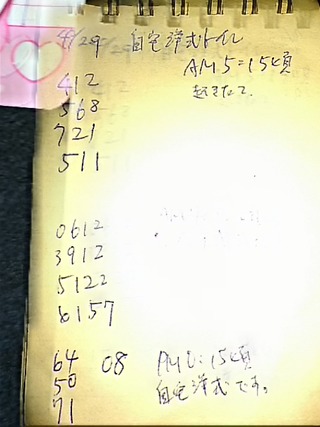 4/29 自宅洋式トイレ
AM5:15頃
起きたて。
412
568
721
511
0612
3912
5122
6157
64 08 AM0:15頃
50 自宅洋式です。
71